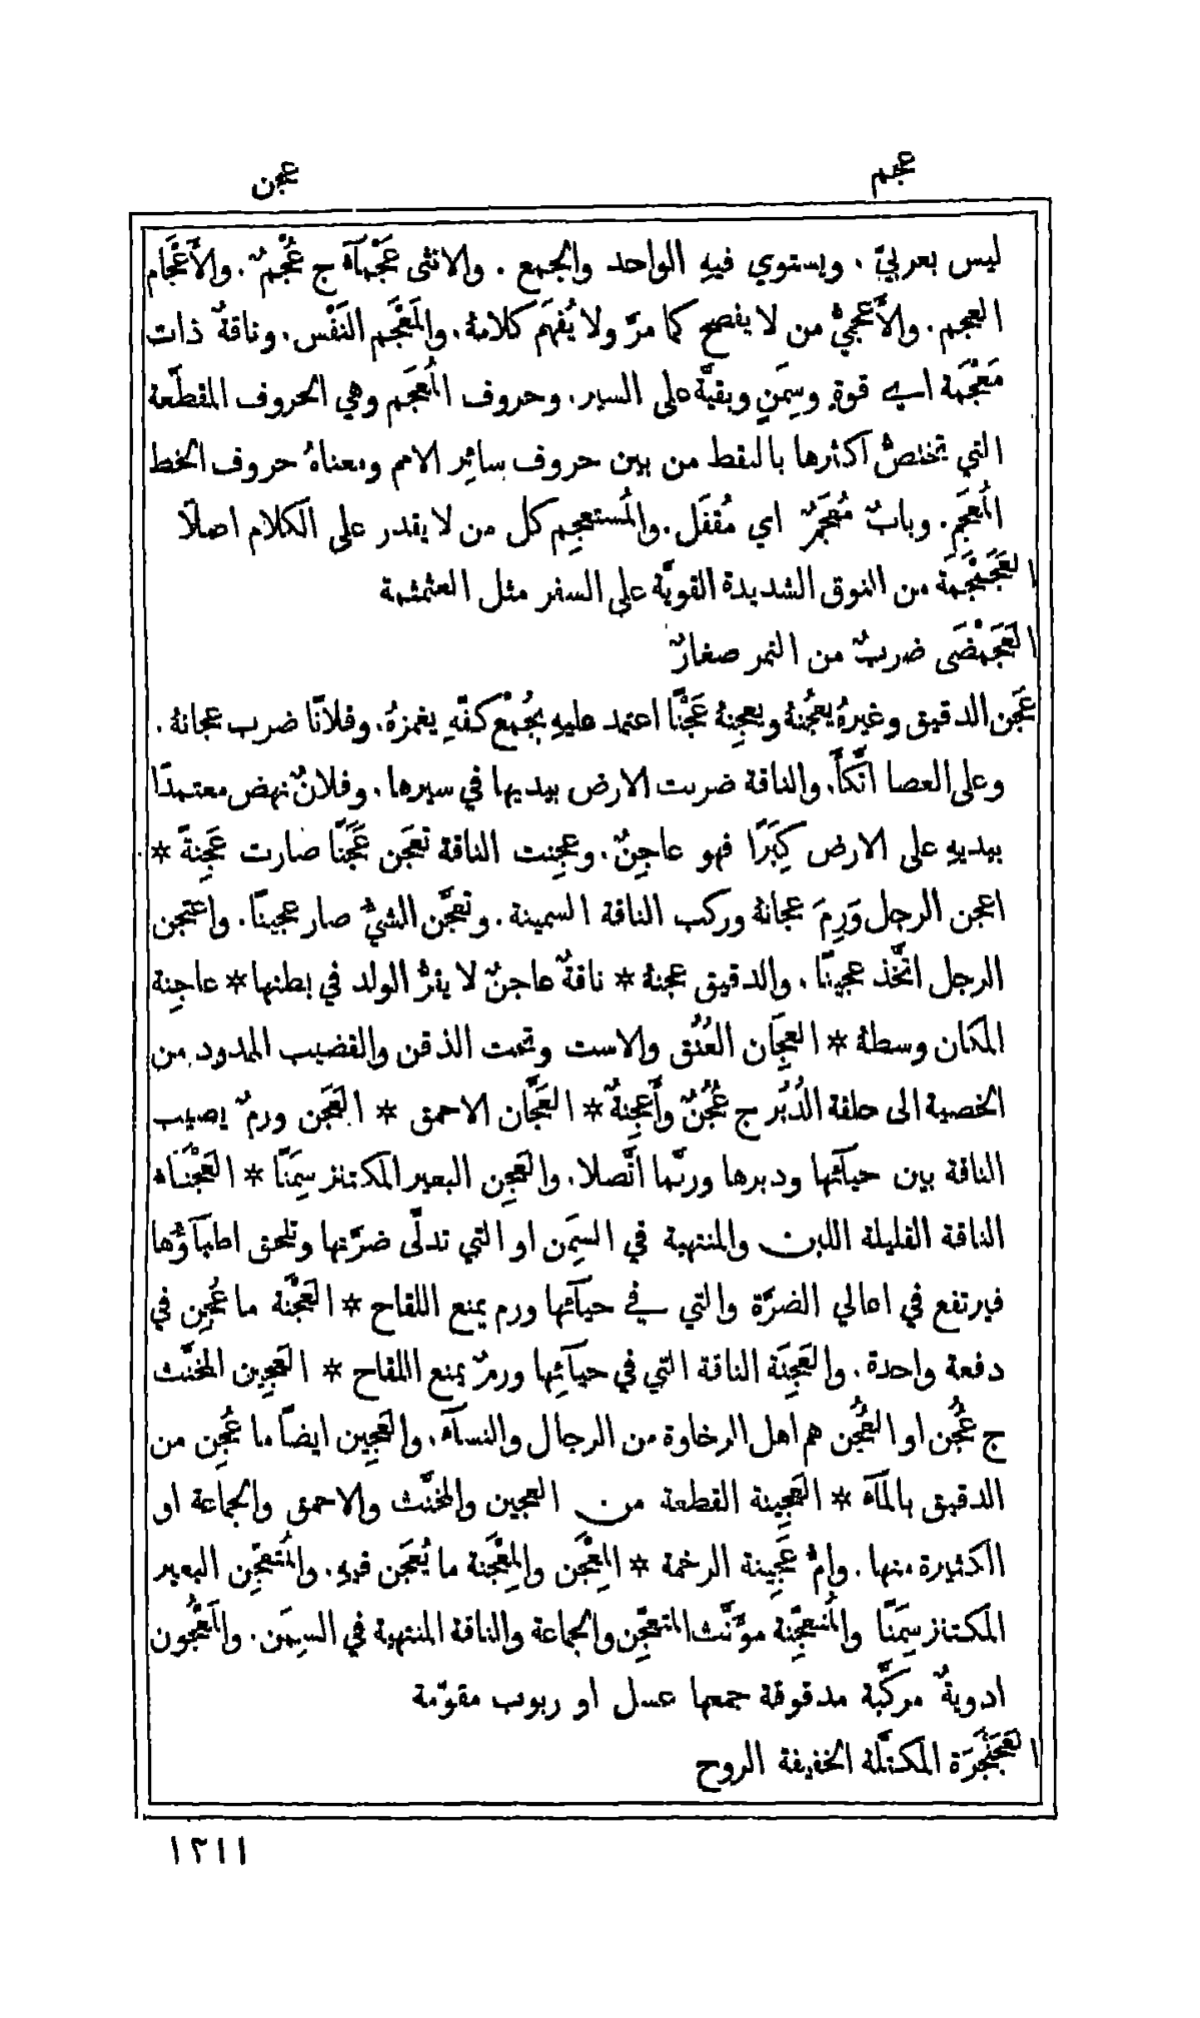 عجم
عجن
ليس بعربيّ . ويستوي فيهِ الواحد والجمع . والانثى عَجْمآءُ ج عُجْمٌ . والأَعْجَام
العجم . والأَعْجَمِيُّ من لا يفصح كما مرَّ ولا يُفهَم كلامهُ . والمَعْجَم النَفْس . وناقةٌ ذات
مَعْجَمة اي قوةٍ وسِمَنٍ وبقيَّة على السير . وحروف المُعجَم وهي الحروف المقطَّعة
التي تختصُّ اكثرها بالنقط من بين حروف سائِر الامم ومعناهُ حروف الخط
المُعجَم . وبابٌ مُعجَمٌ اي مُقفَل . والمُستعجِم كل من لا يقدر على الكلام اصلًا
العَجَمْجَمَة من النوق الشديدة القويَّة على السفر مثل العثمثمة
العَجَمْضَى ضربٌ من التمر صغارٌ
عَجَن الدقيق وغيرهُ يعجُنهُ ويعجِنهُ عَجْنًا اعتمد عليهِ بجُمْع كفّهِ يغمزهُ . وفلانًا ضرب عجانهُ .
وعلى العصا اتَّكأَ . والناقة ضربت الارض بيديها في سيرها . وفلانٌ نهض معتمدًا
بيديهِ على الارض كِبَرًا فهو عاجِنٌ . وعجِنت الناقة تعجَن عَجَنًا صارت عَجِنةً *
اعجن الرجل وَرِمَ عجانهُ وركب الناقة السمينة . وتعجَّن الشيُّ صار عجينًا . واعتجن
الرجل اتَّخذ عجينًا . والدقيق عجنهُ * ناقةٌ عاجنٌ لا يقرُّ الولد في بطنها * عاجِنة
المكان وسطهُ * العِجَان العُنُق والاست وتحت الذقن والقضيب الممدود من
الخصية الى حلقة الدُبُر ج عُجُنٌ وأَعجِنةٌ * العَجَّان الاحمق * العَجَن ورمٌ يصيب
الناقة بين حيآئها ودبرها وربَّما اتَّصلا . والعَجِن البعير المكتنز سِمَنًا * العَجْنَاء
الناقة القليلة اللبن والمنتهية في السِمَن او التي تدلَّى ضرَّتها وتلحق اطبآؤُها
فيرتفع في اعالي الضرَّة والتي في حيآئها ورم يمنع اللقاح * العَجْنَة ما عُجِن في
دفعة واحدة . والعَجِنَة الناقة التي في حيآئِها ورمٌ يمنع اللقاح * العَجِين المخنَّث
ج عُجُن او العُجُن هم اهل الرخاوة من الرجال والنسآء . والعَجِين ايضًا ما عُجِن من
الدقيق بالمآء * العَجِينة القطعة من العجين والمخنَّث والاحمق والجماعة او
الكثيرة منها . وامُّ عَجِينة الرخمة * المِعْجَن والمِعْجَنة ما يُعجَن فيهِ . والمُتعجِّن البعير
المكتنز سِمَنًا والمُتعجِّنة موَّنَّث المتعجِّن والجماعة والناقة المنتهية في السِمَن . والمَعْجُون
ادويةٌ مركَّبة مدقوقة جمعها عسل او ربوب مقوّمة
العَجَنْجَرَة المكتَّلة الخفيفة الروح
١٣١١